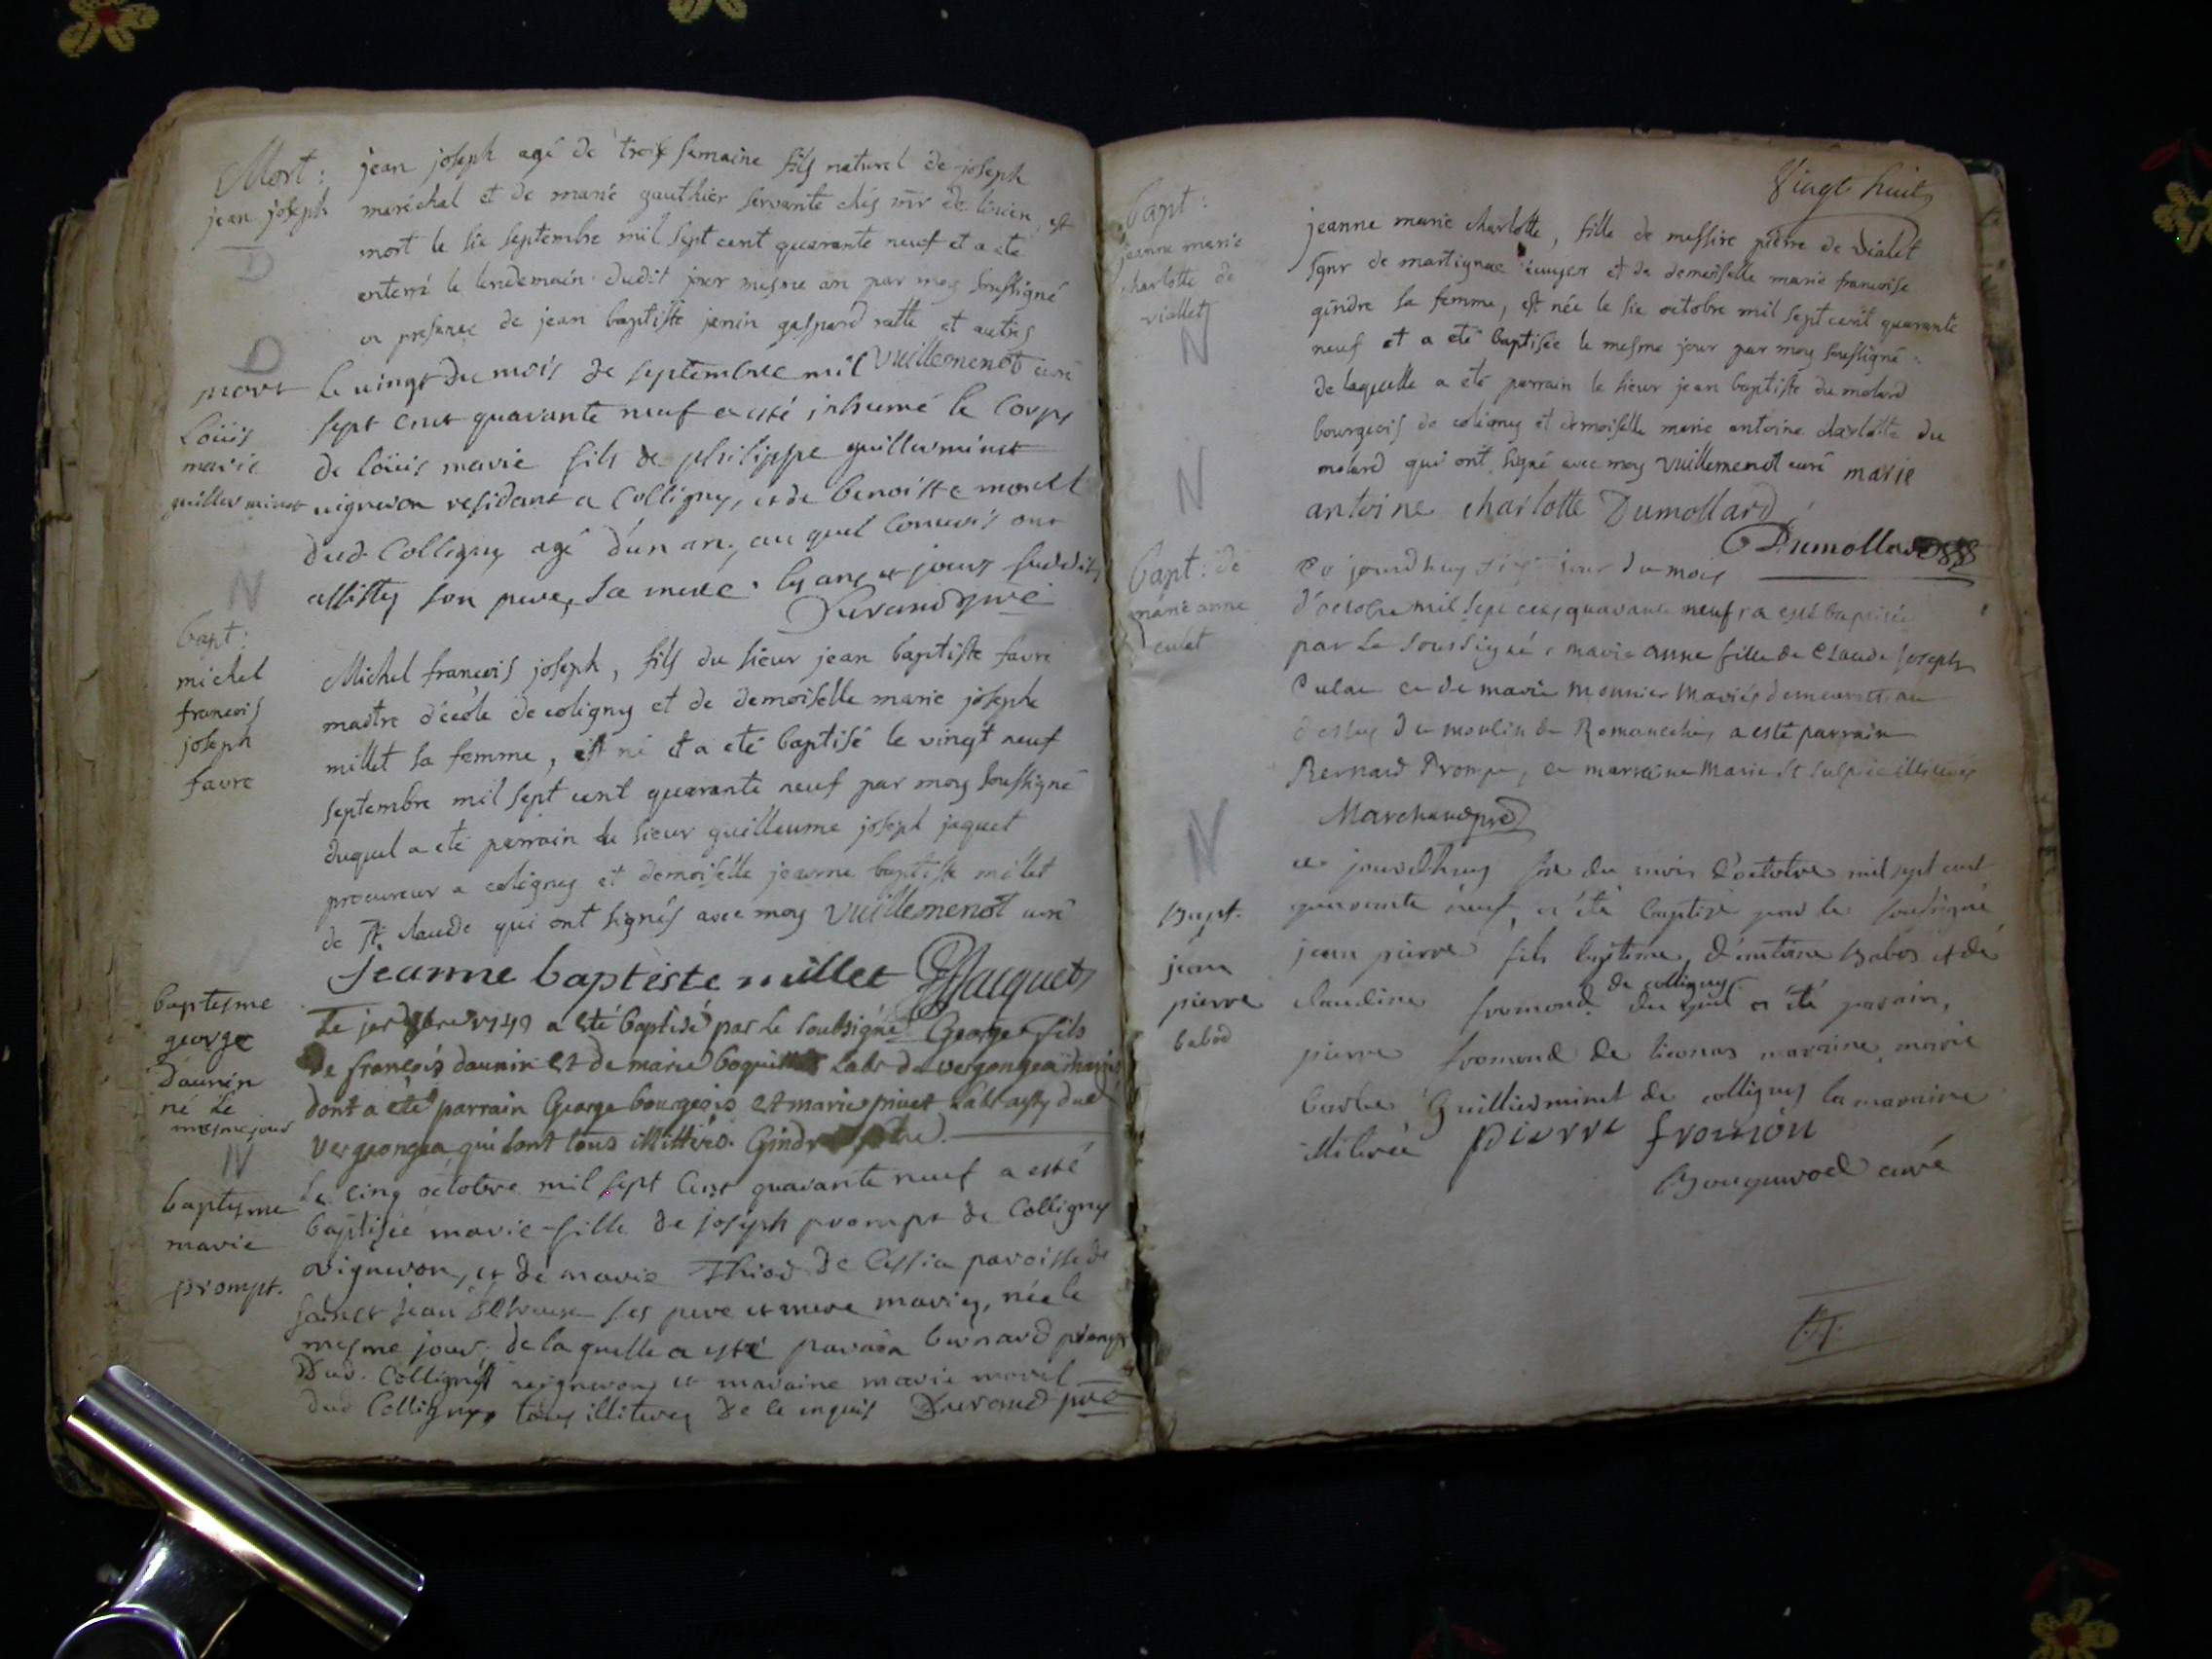 Mort :
jean joseph
D
jean joseph agé de trois semaine fils naturel de joseph
maréchal et de marie gauthier servante chés mr de est
mort le six septembre mil sept cent quarante neuf et a eté
enterré le lendemain dudit jour mesme an par moy soussigné
en presence de jean baptiste janin gaspard ratte et autres
vuillemenot curé
D
mort
Loüis
marie
guillerminet
le vingt du mois de septembre mil
sept cent quarante neuf a esté inhumé le corps
de loüis marie fils de philippe guillerminet
vigneron residant a Colligny, et de benoiste morel
dud. Colligny agé d'un an, au quel convois ont
assistez son pere, sa mere. les ans et jours susdits
Durand pre
N
bapt :
michel
francois
joseph
favre
Michel francois joseph, fils du sieur jean baptiste favre
maitre d'école de coligny et de demoiselle marie josephe
millet sa femme, est né et a eté baptisé le vingt neuf
septembre mil sept cent quarante neuf par moy soussigné
duquel a eté parrain le sieur guillaume joseph jaquet
procureur a coligny et demoiselle jeanne baptiste millet
de st. claude qui ont signés avec moy vuillemenot curé
jeanne baptiste millet Jacquet
baptesme
george
daunin
né le
mesme jour
N
Le 1er 1749 a eté baptisé par le soubsigné George fils
de françois daunin et de marie labr de vergongea
dont a eté parrain George bourgeois et marie
vergeongea qui sont tous illittérés. Gindre
baptesme
marie
prompt.
Le cinq octobre mil sept cent quarante neuf a esté
baptisée marie fille de joseph prompt de Colligny
vigneron, et de marie Thiod de Cessia paroisse de
sainct jean ses pere et mere mariez, née le
mesme jour, de la quelle a esté parain bernard prompt
Dud. Colligny vigneron et maraine marie morel
dud Colligny, tous illiterez de ce enquis Durand pre
Vingt huit
bapt :
jeanne marie
charlotte de
viallet
N
N
jeanne marie charlotte, fille de messire pierre de vialet
sgnr de martignac écuyer et de demoiselle marie francoise
gindre sa femme, est née le six octobre mil sept cent quarante
neuf et a eté baptisée le mesme jour par moy soussigné :
de laquelle a eté parrain le sieur jean baptiste du molard
bourgeois de coligny et demoiselle marie antoine charlotte du
molard qui ont signé avec moy vuillemenot curé marie
antoine charlotte Dumollard
Dumollard
bapt : de
marie anne
culet
N
Ce jourdhuy jour du mois
d'octobre mil sept cent quarante neuf, a esté baptisée
par le soussigné marie anne fille de Claude joseph
et de marie monnier mariés demeurants au
dessus du moulin de a esté parrain
Bernard Promp, et marraine Marie
Marchand pre
Bapt.
jean
pierre
babod
ce jourdhuy six du mois d'octobre mil sept cent
quarante neuf, a été baptisé par le soussigné
jean pierre fils legitime, d'antoine babod et de
claudine fromond de colligny du quel a été parain,
pierre fromond de maraine marie
barbe Guillierminet de colligny la maraine
illiterée pierre fromon
curé